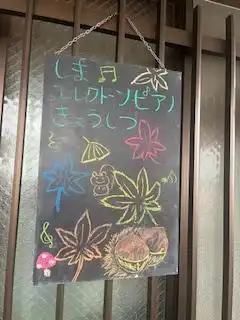 しま♫
エレクトーンピアノ
きょうしつ